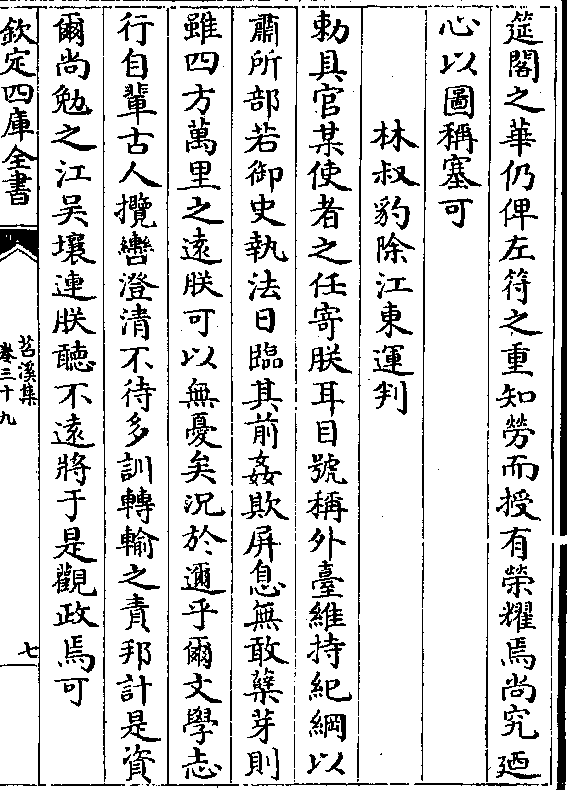 筵閣之華仍俾左符之重知勞而授有榮耀焉尚究廼
心以圖稱塞可
林叔豹除江東運判
勅具官某使者之任寄朕耳目號稱外臺維持紀綱以
肅所部若御史執法日臨其前姦欺屏息無敢櫱芽則
雖四方萬里之遠朕可以無憂矣況於邇乎爾文學志
行自輩古人攬轡澄清不待多訓轉輸之責邦計是資
爾尚勉之江吴壤連朕聽不遠將于是觀政焉可
欽定四庫全書
苕溪集
卷三十九
七